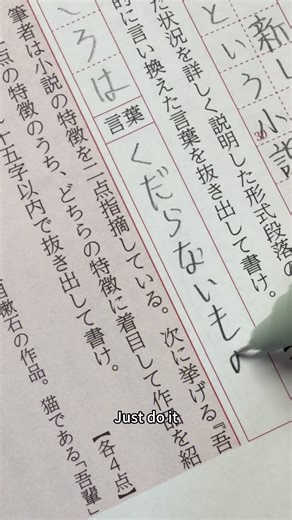 新しい小説
という
た状況を詳しく説明した形式段落の
的に言い換えた言葉を抜き出して書け。
言葉
くだらないもの
ころは
筆者は小説の特徴を二点指摘している。次に挙げる『吾
点の特徴のうち、どちらの特徴に着目して作品を紹
十五字以内で抜き出して書け。
【各4点】
目漱石の作品。猫である「吾輩」
Just do it